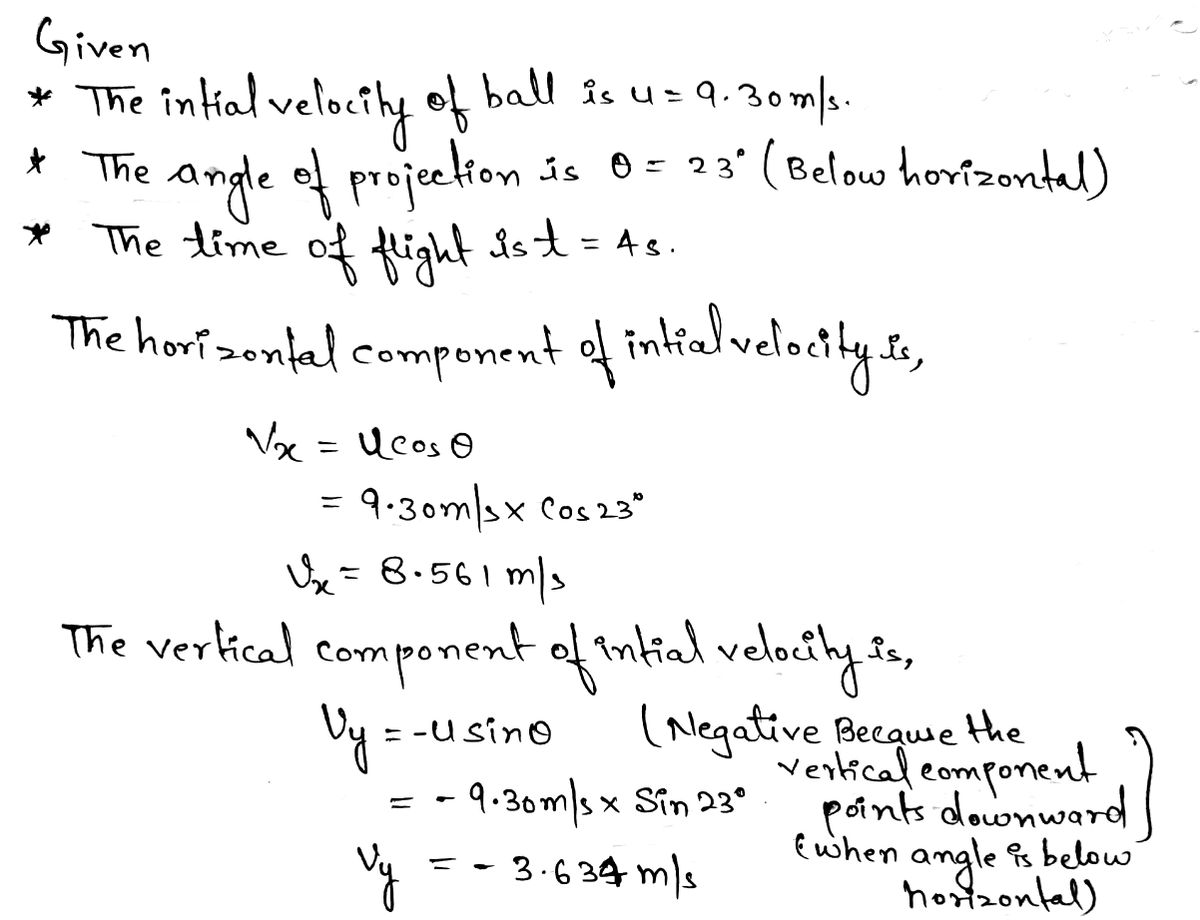 Given
* The intial velocity of ball is u = 9.30 m/s.
* The angle of projection is θ = 23° (Below horizontal)
* The time of flight is t = 4s.
The horizontal component of intial velocity is,
Vx = u cos θ
= 9.30 m/s x Cos 23°
Vx = 8.561 m/s
The vertical component of intial velocity is,
Vy = -u sinθ (Negative Because the
vertical component
= - 9.30 m/s x Sin 23° points downward)
(when angle is below
Vy = - 3.634 m/s horizontal)